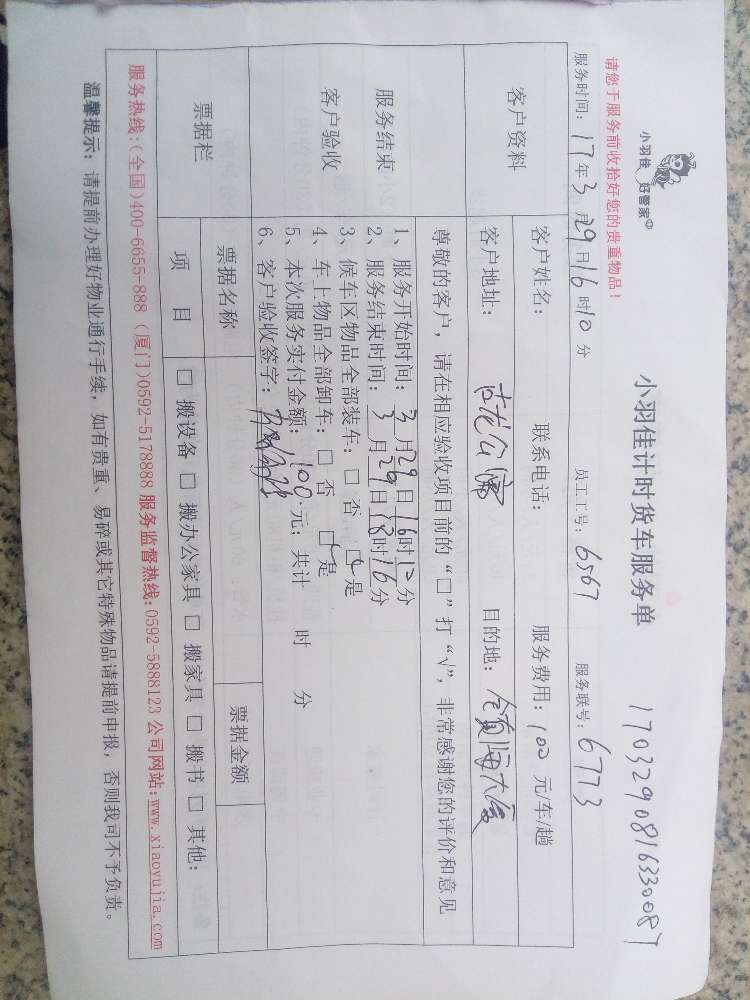 小羽佳 好管家
小羽佳计时货车服务单
1703290816330087
请您于服务前收拾好您的贵重物品！
服务时间：17年3月29日16时10分 员工工号：6567 服务联号：6773
客户资料
客户姓名： 联系电话： 服务费用：100元/车/趟
客户地址： 目的地：
服务结束
客户验收
尊敬的客户，请在相应验收项目前的“□”打“√”，非常感谢您的评价和意见
1、服务开始时间：3月29日16时10分
2、服务结束时间：3月29日18时16分
3、候车区物品全部装车：□ 否 ☑是
4、车上物品全部卸车：□ 否 ☑是
5、本次服务实付金额：100.元；共计 时 分
6、客户验收签字：
票据栏
票据名称 票据金额
项 目 □ 搬设备 □ 搬办公家具 □ 搬家具 □ 搬书 □ 其他：
服务热线：(全国)400-6655-888 (厦门)0592-5178888 服务监督热线：0592-5888123 公司网站：www.xiaoyujia.com
温馨提示：请提前办理好物业通行手续，如有贵重、易碎或其它特殊物品请提前申报，否则我司不予负责。